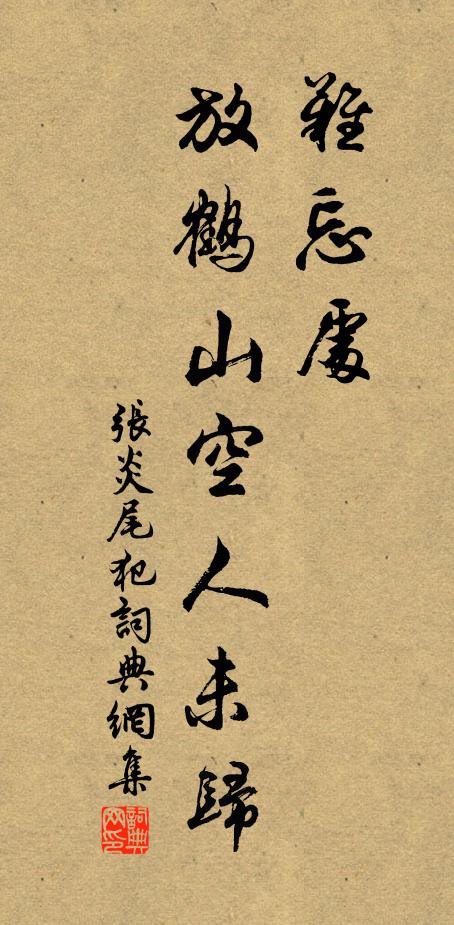 難忘處
放鶴山空人未歸
張炎尾犯詞典網集
詞典
网印